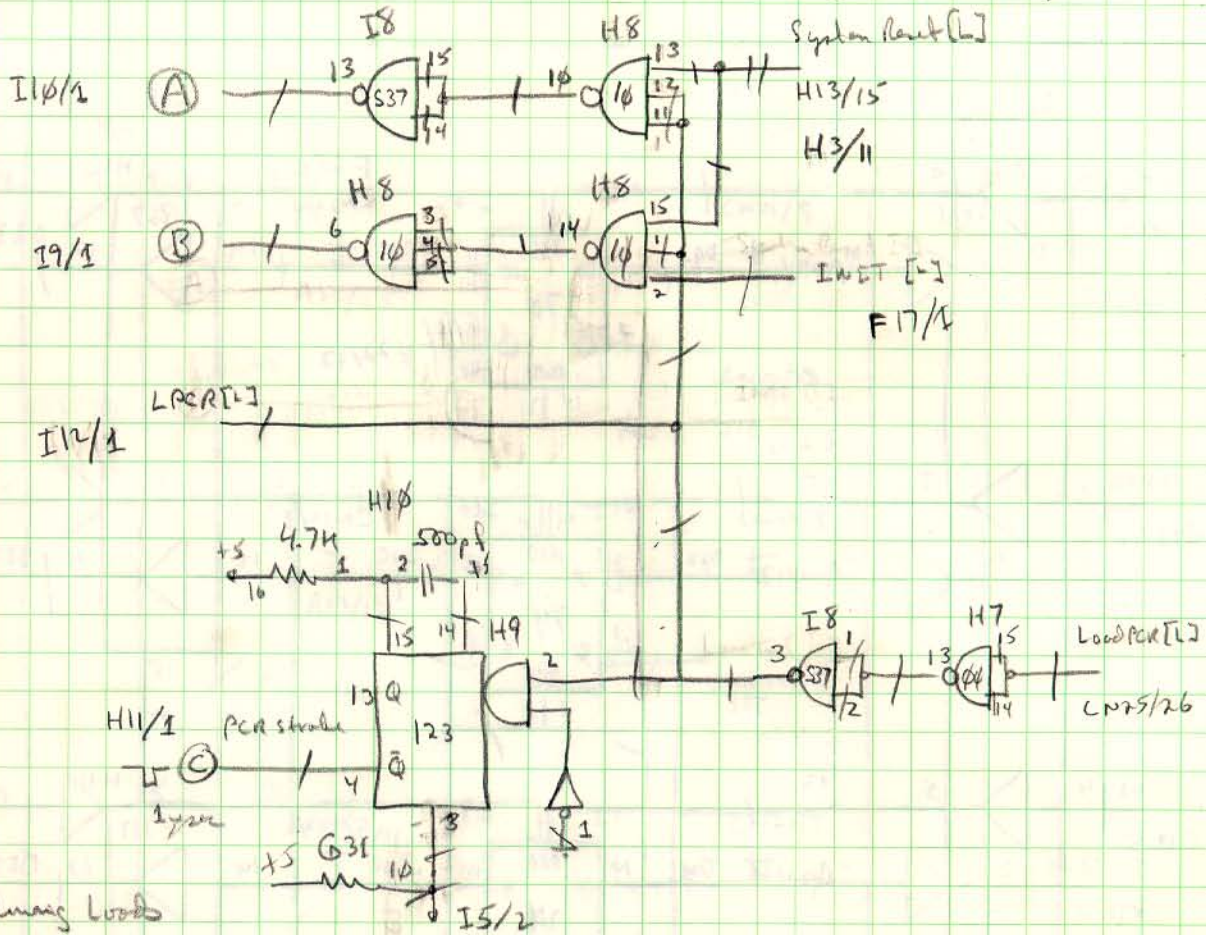 I8
H8
System Reset [L]
I1Ø/1
A
13
S37
15
14
1Ø
1Ø
13
12
11
1
H13/15
H3/11
H8
H8
I9/1
B
6
1Ø
3
4
5
14
1Ø
15
1
2
INIT [L]
F17/1
LPCR[L]
I12/1
H1Ø
+5
4.7K
500pf
+5
16
1
2
15
14
H9
I8
H7
Load PCR[L]
13
Q
123
2
3
S37
1
2
13
Ø4
15
14
CN25/26
H11/1
PCR strobe
C
4
Q̄
1 μsec
3
1
+5
G31
1Ø
I5/2
Loads